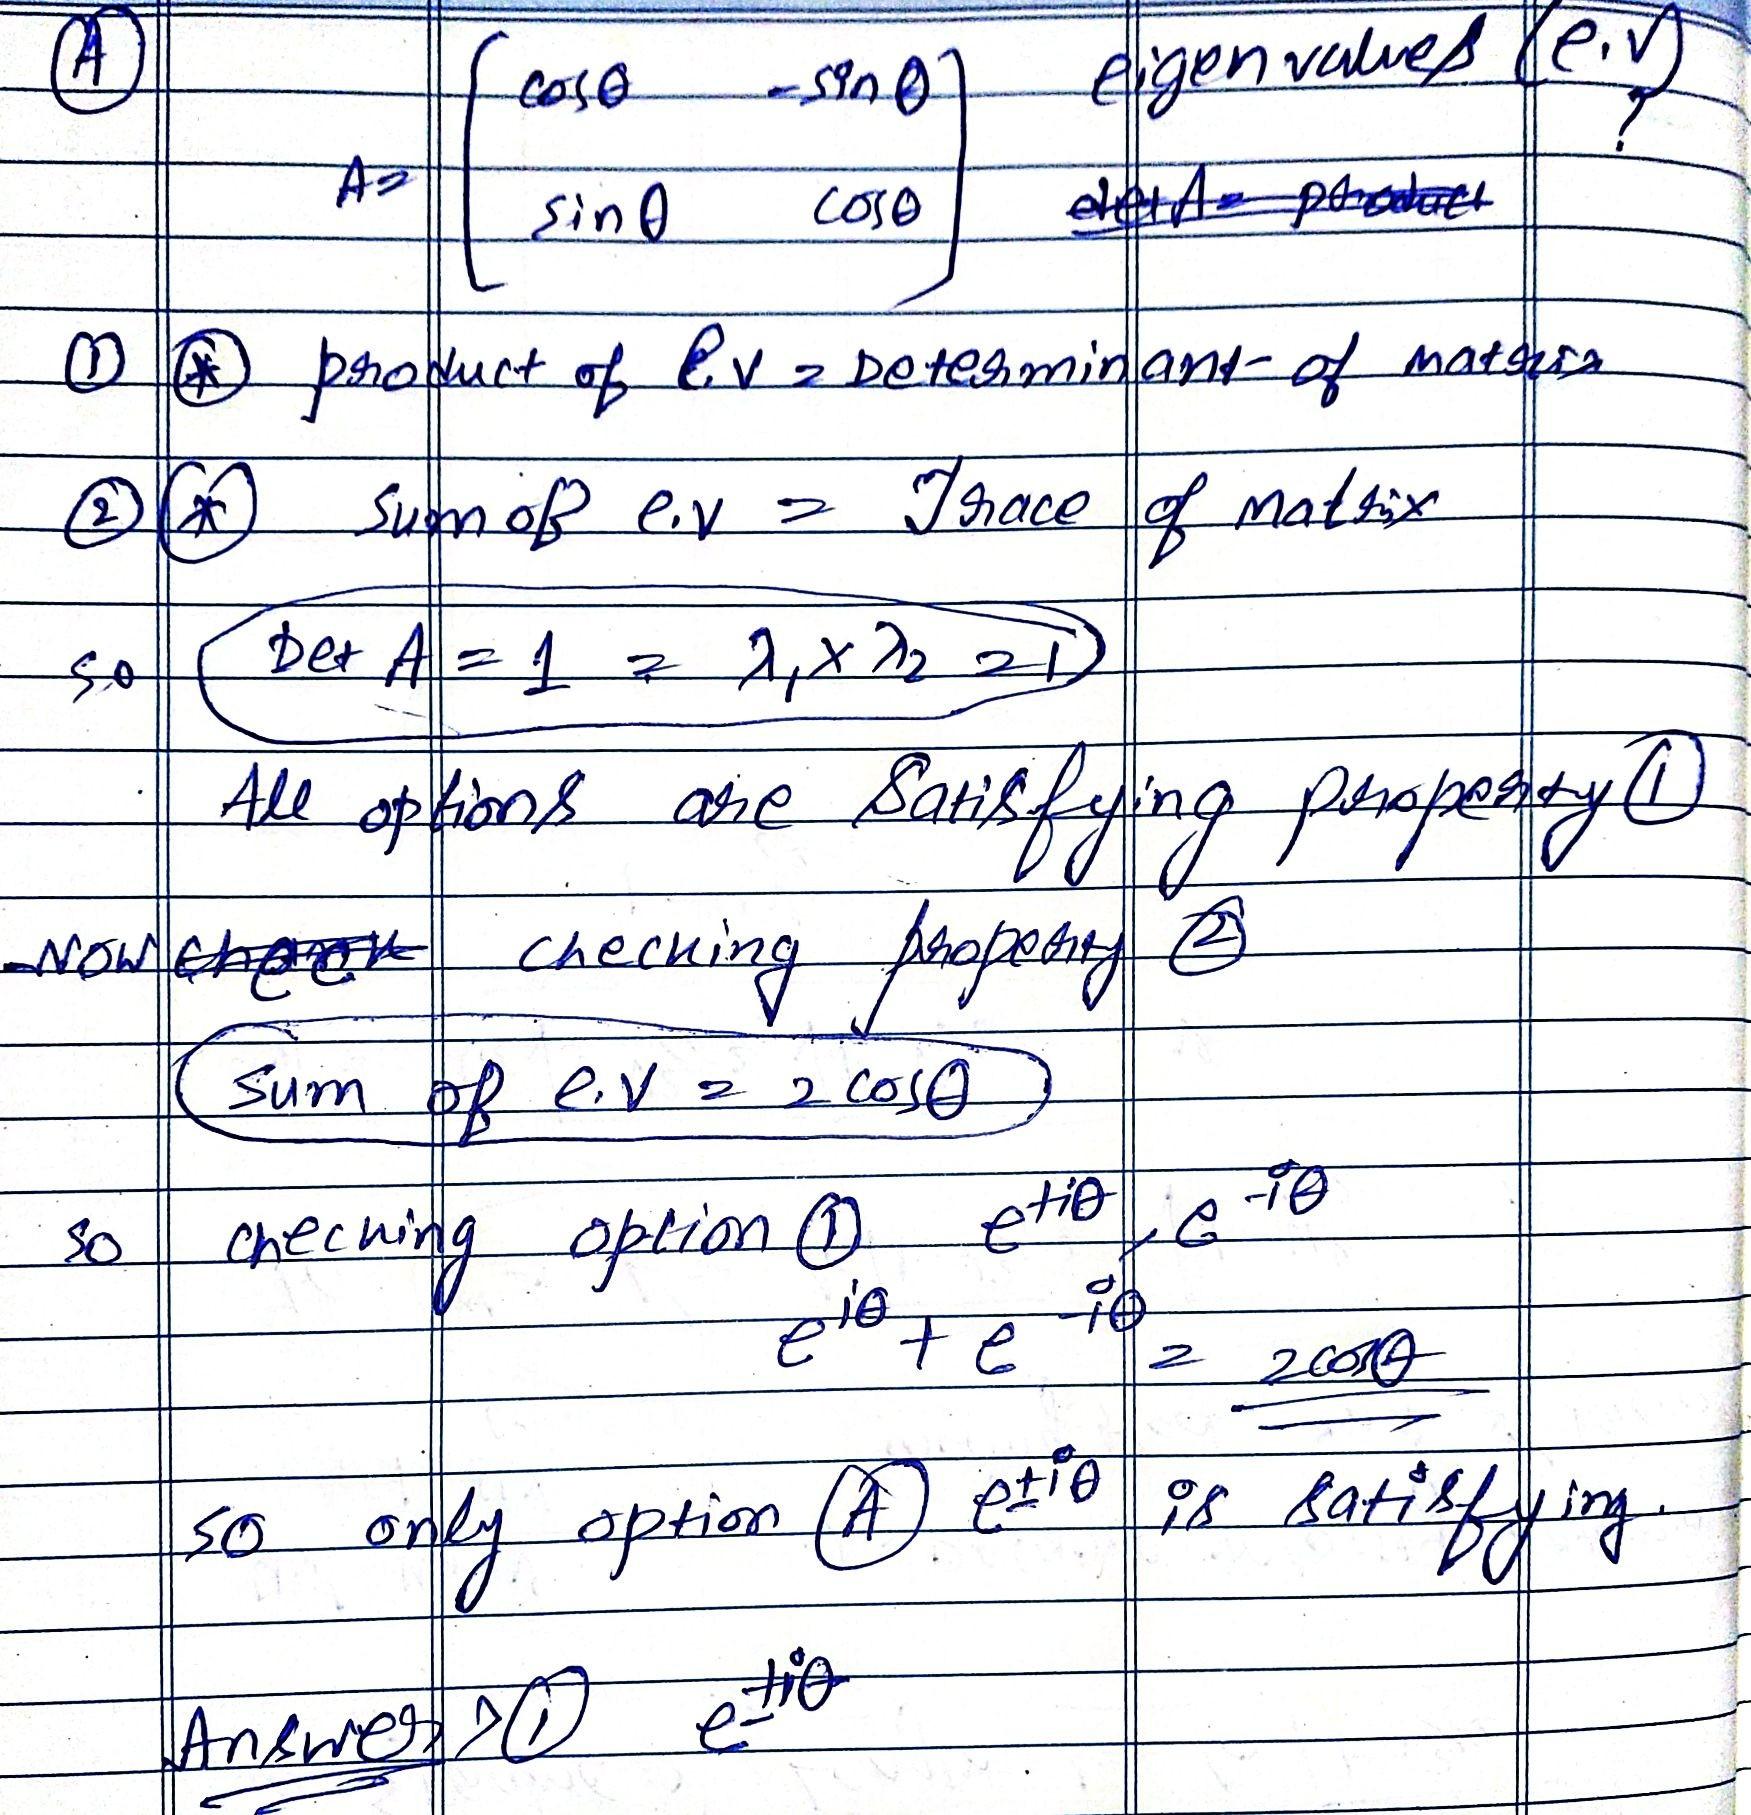 (A) A= [cosθ -sinθ sinθ cosθ] eigenvalues (e.v) ?
det A = product
① * product of e.v = Determinant of matrix
② * Sum of e.v = Trace of matrix
so Det A = 1 = λ₁ x λ₂ = 1
All options are Satisfying property ①
Now check checking property ②
Sum of e.v = 2 cosθ
so checking option ① e^{+iθ}, e^{-iθ}
e^{iθ} + e^{-iθ} = 2cosθ
so only option (A) e^{±iθ} is satisfying.
Answer > ① e^{±iθ}